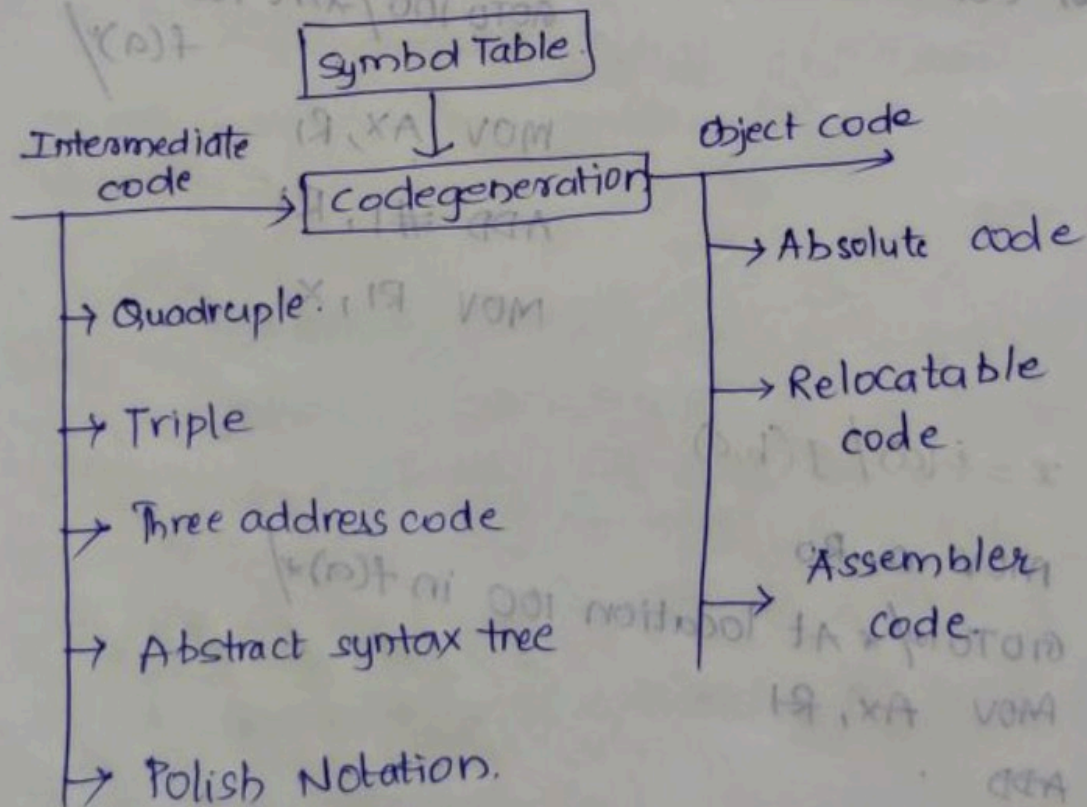 Symbol Table.
Intermediate
code
Object code
Codegeneration
Quadruple.
Triple
Three address code
Abstract syntax tree
Polish Notation.
Absolute code
Relocatable
code.
Assembler
code.